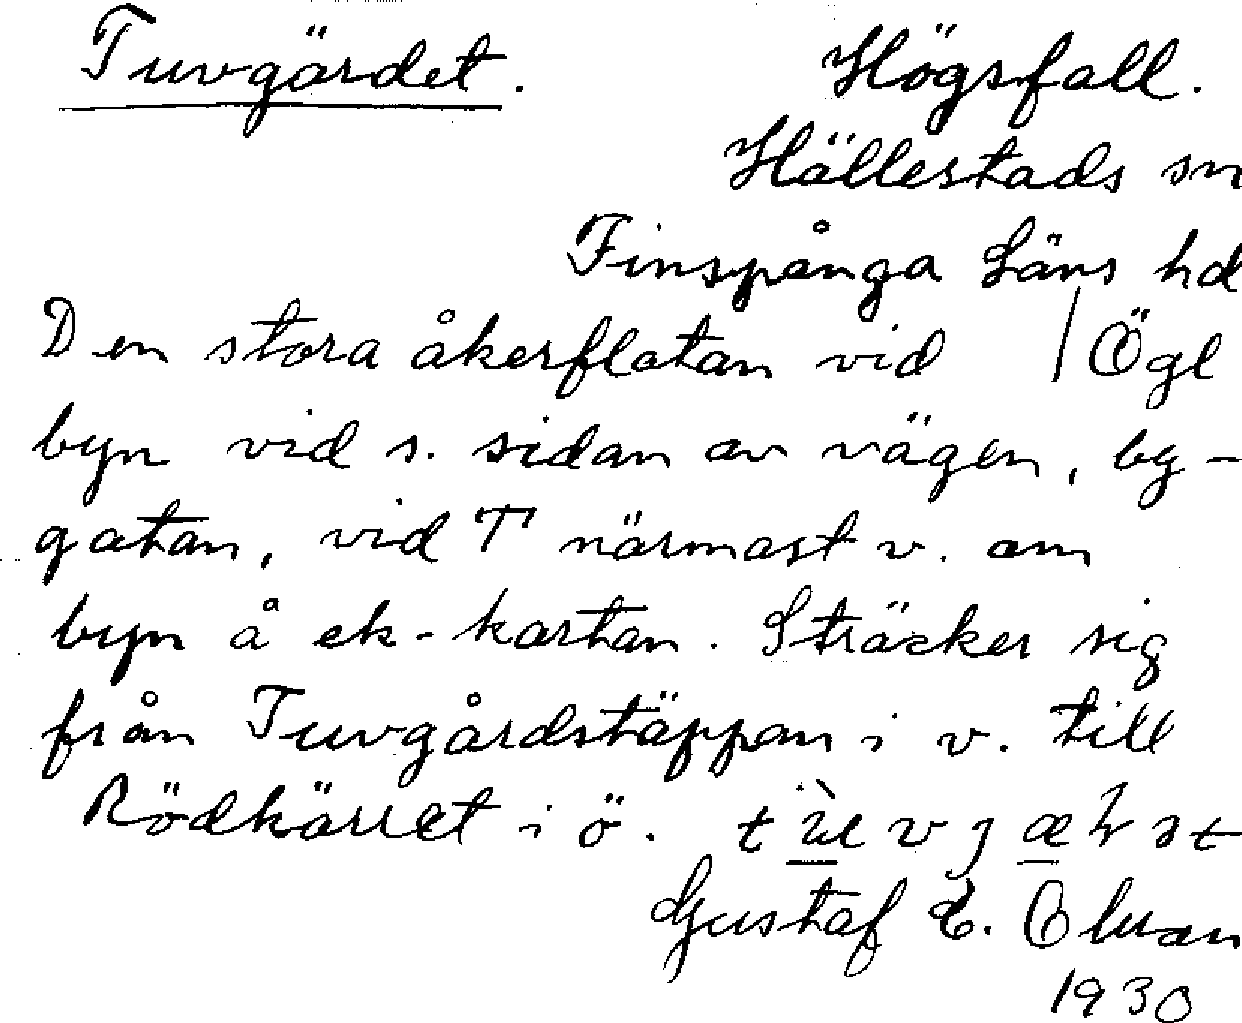 Tuvgärdet. Högsfall.
Hällestads sn
Finspånga Läns hd
Den stora åkerflatan vid / Ögl
byn vid s. sidan av vägen, by-
gatan, vid T närmast v. om
byn å ek-kartan. Sträcker sig
från Tuvgårdstäppan i v. till
Rödkärret i ö.
Gustaf E.
1930